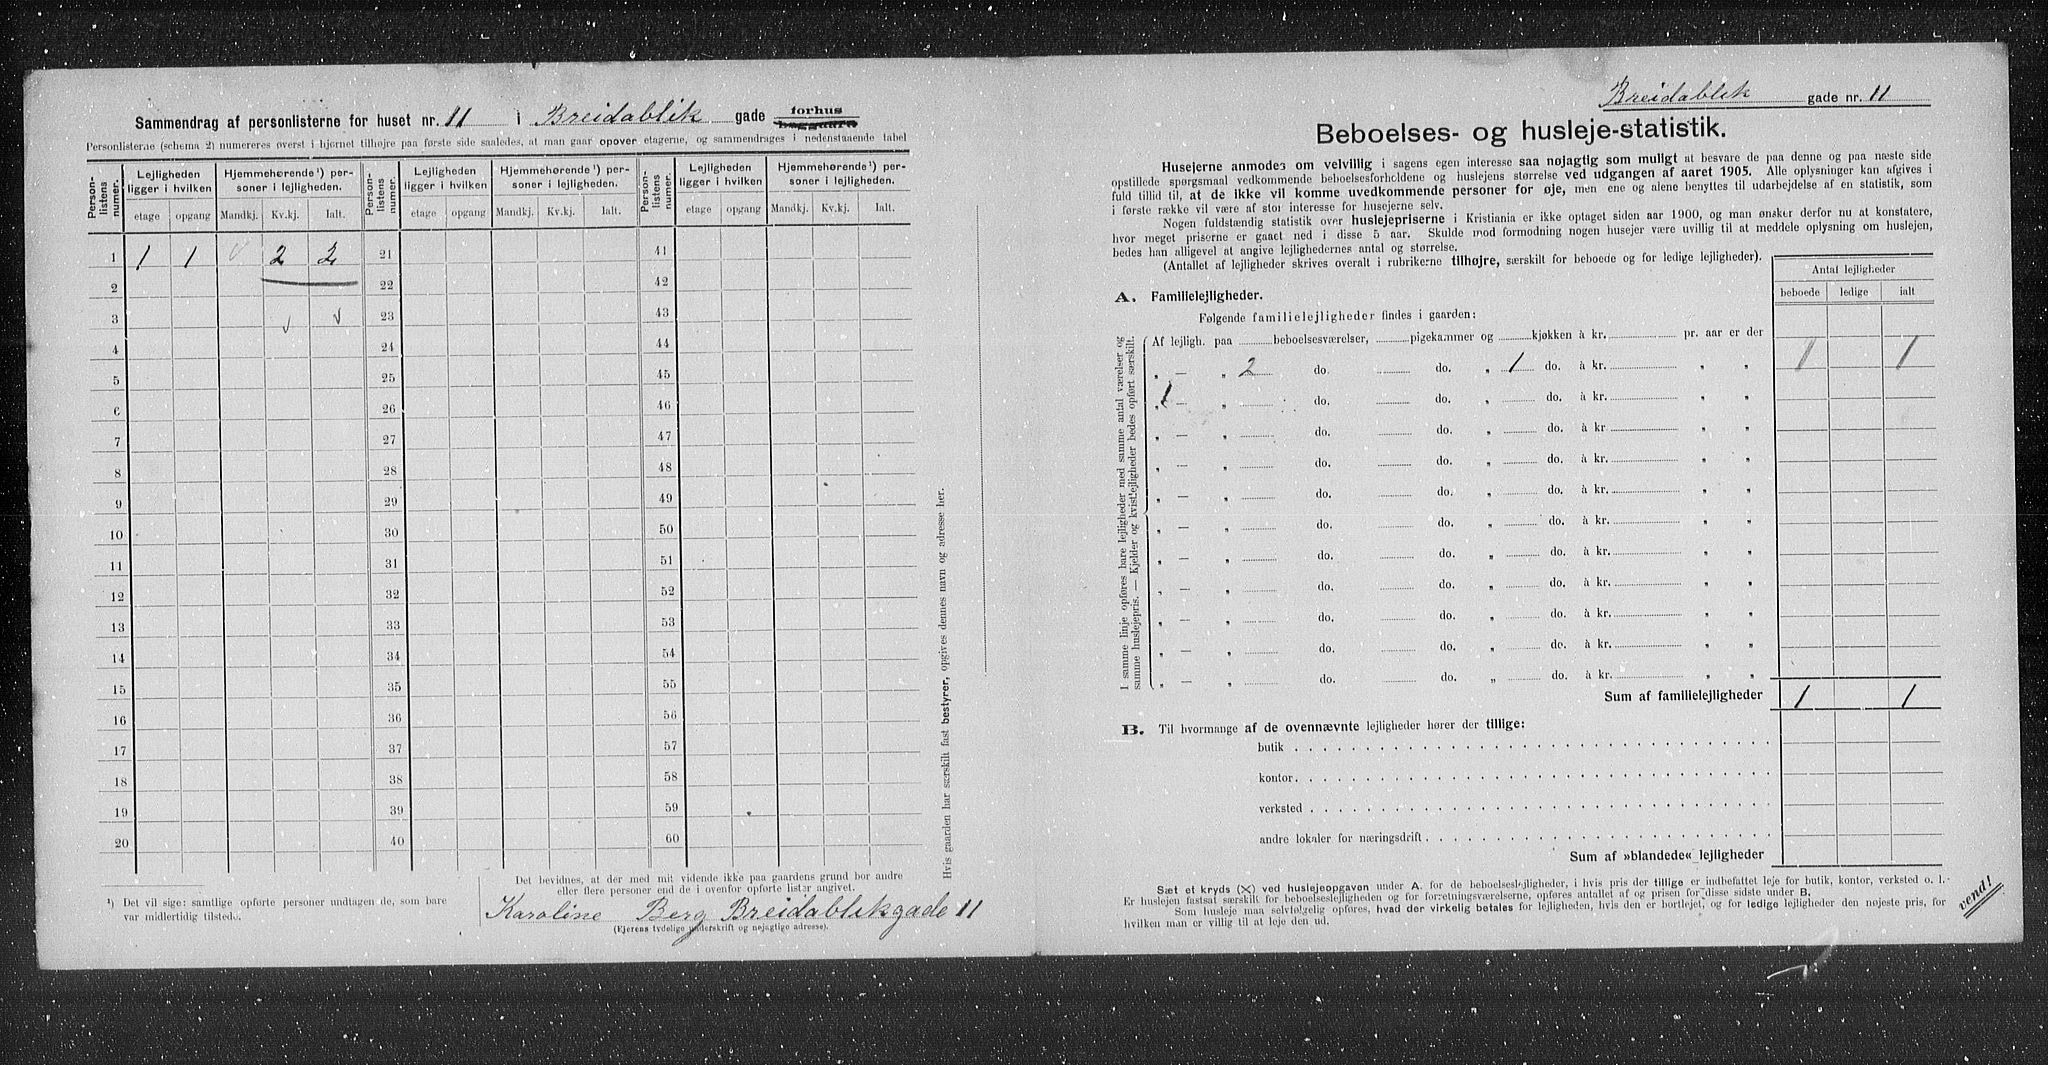 Sammendrag af personlisterne for huset nr. 11 i Breidablik gade forhus baggaard
Personlisterne (schema 2) numereres øverst i hjørnet tilhøjre paa første side saaledes, at man gaar opover etagerne, og sammendrages i nedenstaaende tabel
Person-listens numer. Lejligheden ligger i hvilken Hjemmehørende¹) personer i lejligheden. Person-listens numer. Lejligheden ligger i hvilken Hjemmehørende¹) personer i lejligheden. Person-listens numer. Lejligheden ligger i hvilken Hjemmehørende¹) personer i lejligheden.
etage opgang Mandkj. Kv.kj. Ialt. etage opgang Mandkj. Kv.kj. Ialt. etage opgang Mandkj. Kv.kj. Ialt.
1 1 1 2 2 21 41
2 22 42
3 23 43
4 24 44
5 25 45
6 26 46
7 27 47
8 28 48
9 29 49
10 30 50
11 31 51
12 32 52
13 33 53
14 34 54
15 35 55
16 36 56
17 37 57
18 38 58
19 39 59
20 40 60
¹) Det vil sige: samtlige opførte personer undtagen de, som bare
var midlertidig tilstede.
Det bevidnes, at der med mit vidende ikke paa gaardens grund bor andre
eller flere personer end de i ovenfor opførte lister angivet.
Karoline Berg Breidablikgade 11
(Ejerens tydelige underskrift og nøjagtige adresse).
Hvis gaarden har særskilt fast bestyrer, opgives dennes navn og adresse her.
Breidablik gade nr. 11
Beboelses- og husleje-statistik.
Husejerne anmodes om velvillig i sagens egen interesse saa nøjagtig som muligt at besvare de paa denne og paa næste side
opstillede spørgsmaal vedkommende beboelsesforholdene og huslejens størrelse ved udgangen af aaret 1905. Alle oplysninger kan afgives i
fuld tillid til, at de ikke vil komme uvedkommende personer for øje, men ene og alene benyttes til udarbejdelse af en statistik, som
i første række vil være af stor interesse for husejerne selv.
Nogen fuldstændig statistik over huslejepriserne i Kristiania er ikke optaget siden aar 1900, og man ønsker derfor nu at konstatere,
hvor meget priserne er gaaet ned i disse 5 aar. Skulde mod formodning nogen husejer være uvillig til at meddele oplysning om huslejen,
bedes han alligevel at angive lejlighedernes antal og størrelse.
(Antallet af lejligheder skrives overalt i rubrikerne tilhøjre, særskilt for beboede og for ledige lejligheder).
Antal lejligheder
beboede ledige ialt
A. Familielejligheder.
Følgende familielejligheder findes i gaarden:
I samme linje opføres bare lejligheder med samme antal værelser og
samme huslejepris. — Kjelder og kvistlejligheder bedes opført særskilt.
Af lejligh. paa beboelsesværelser, pigekammer og kjøkken à kr. pr. aar er der
„ — „ 2 do. do. „ 1 do. à kr. „ „ 1 1
„ 1 — „ do. do. „ do. à kr. „ „
„ — „ do. do. „ do. à kr „ „
„ — „ do. do. „ do. à kr. „ „
„ — „ do. do. „ do. à kr. „ „
„ — „ do. do. „ do. à kr. „ „
„ — „ do. do. „ do. à kr. „ „
„ — „ do. do. „ do. à kr. „ „
„ — „ do. do. „ do. à kr. „ „
„ — „ do. do. „ do. à kr. „ „
„ — „ do. do. „ do. à kr. „ „
Sum af familielejligheder 1 1
B. Til hvormange af de ovennævnte lejligheder hører der tillige:
butik
kontor
verksted
andre lokaler for næringsdrift
Sum af »blandede« lejligheder
Sæt et kryds (X) ved huslejeopgaven under A. for de beboelseslejligheder, i hvis pris der tillige er indbefattet leje for butik, kontor, verksted o. l.
Er huslejen fastsat særskilt for beboelseslejligheden og for forretningsværelserne, opføres antallet af og prisen for disse sidste under B.
Som husleje maa selvfølgelig opføres, hvad der virkelig betales for lejligheden, hvis den er bortlejet, og for ledige lejligheder den nøjeste pris, for
hvilken man er villig til at leje den ud.
vend!